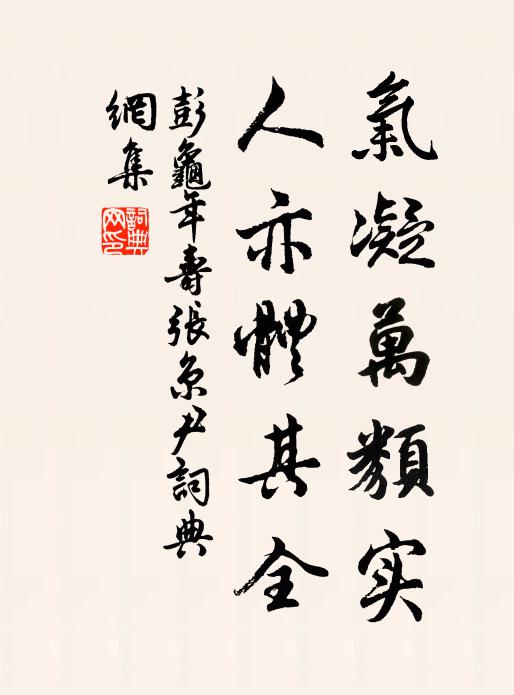 氣凝萬類实
人亦體其全
彭龜年壽張京尹詞典
網集
詞典网印